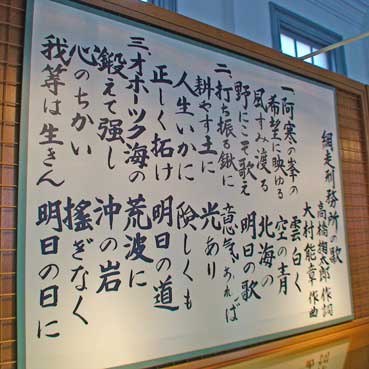 網走刑務所の歌
高橋掬太郎 作詞
大村能章 作曲
一、阿寒の峯の 雲白く
希望に映ゆる 空の青
風すみ渡る 北海の
野にこそ歌え 明日の歌
二、打ち振る鍬に 意気あれば
耕やす土に 光あり
人生いかに 険しくも
正しく拓け 明日の道
三、オホーツク海の 荒波に
鍛えて強し 沖の岩
心のちかい 揺ぎなく
我等は生きん 明日の日に